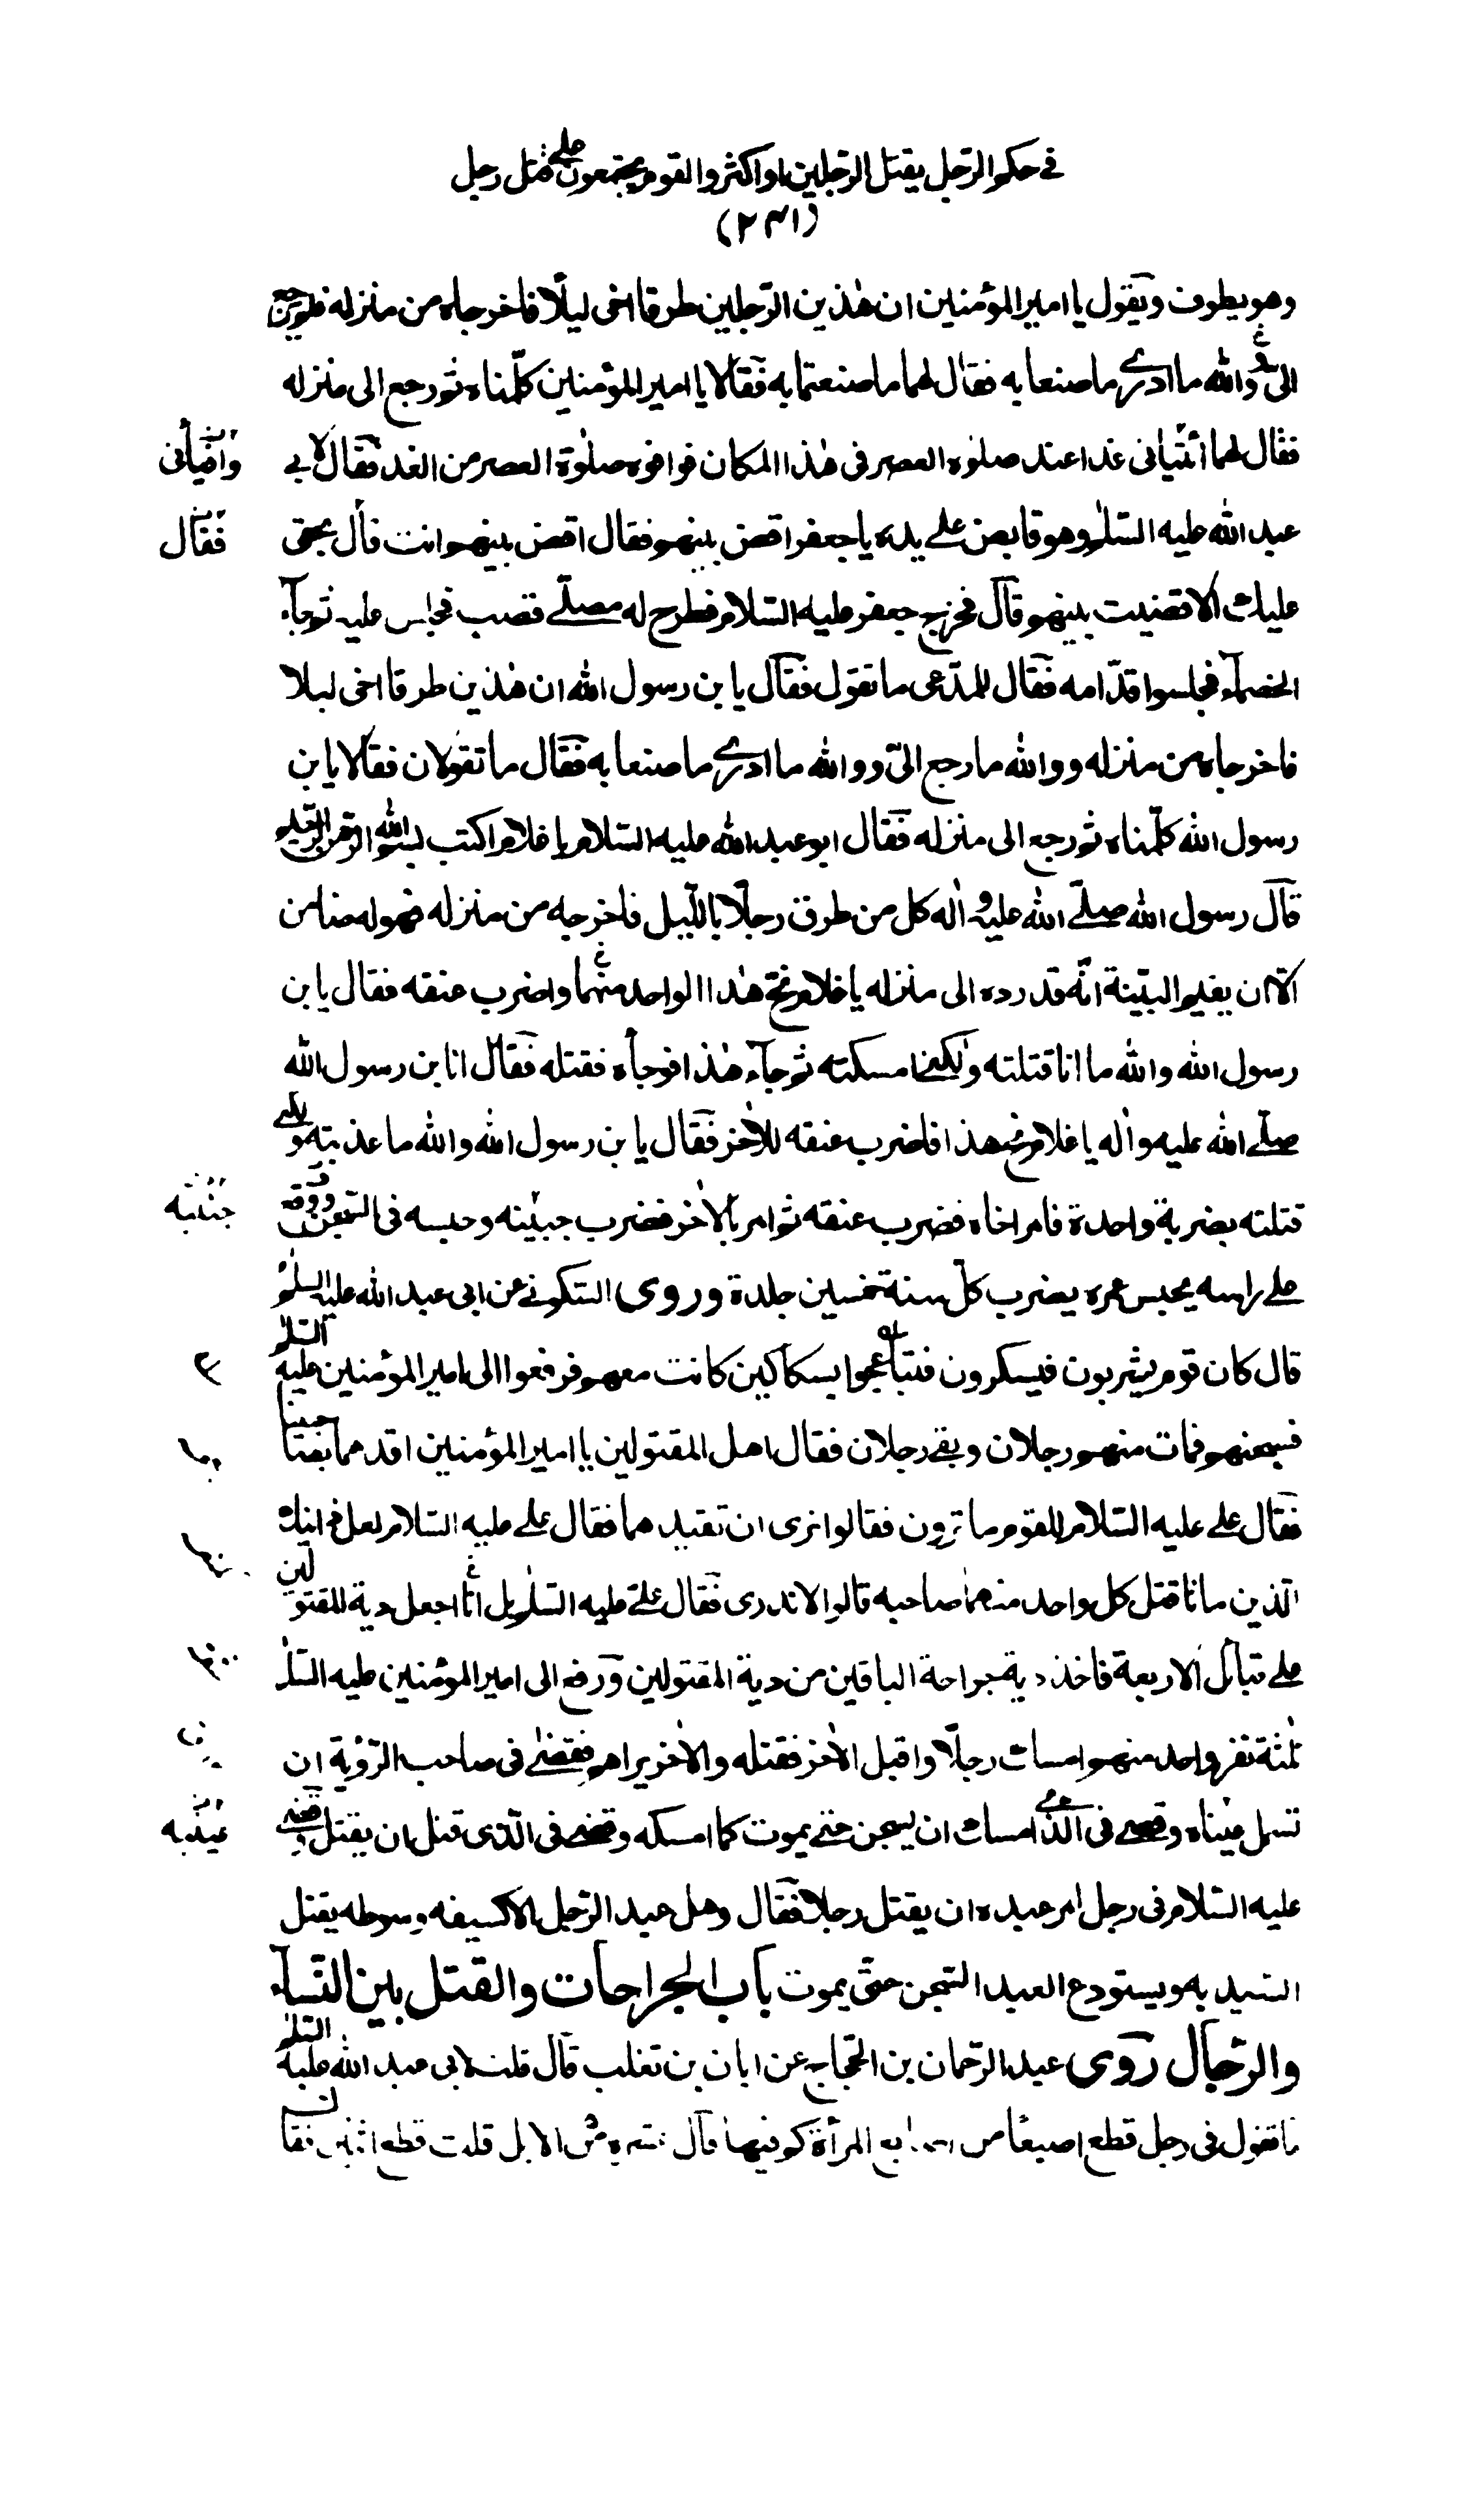 في حكم الرّجل يقتل الرّجلين او اكثر والقوم يجتمعون على قتل رجل
(٢٣١)
وهو يطوف ويقول يا امير المؤمنين ان هٰذين الرّجلين طرقا اخى ليلًا فاخرجاه من منزله فلم يرجع
الىّ والله ما ادرى ما صنعا به فقال لهما ما صنعتما به فقالا يا امير المؤمنين كلّمناه ثم رجع الى منزله
فقال لهما ائتيانى غدا عند صلوٰة العصر فى هٰذا المكان فوافوه صلوٰة العصر من الغد فقال لابى
وافيانى
عبد الله عليه السّلام وهو قابض على يده يا جعفر اقض بينهم فقال اقض بينهم انت قال بحقى
فقال
عليك الا قضيت بينهم قال فخرج جعفر عليه السّلام فطرح له مصلّى قصب فجلس عليه ثم جآء
الخصمآء فجلسوا قدّامه فقال للمدّعى ما تقول فقال يا بن رسول الله ان هٰذين طرقا اخى ليلا
فاخرجاه من منزله ووالله ما رجع الىّ ووالله ما ادرى ما صنعا به فقال ما تقولان فقالا يا بن
رسول الله كلّمناه ثم رجع الى منزله فقال ابو عبد الله عليه السّلام يا غلام اكتب بسم الله الرّحمن الرّحيم
قال رسول الله صلّى الله عليه واٰله كل من طرق رجلًا بالليل فاخرجه من منزله فهو له ضامن
الّا ان يقيم البيّنة انّه قد ردّه الى منزله يا غلام نحّ هٰذا الواحد منهما واضرب عنقه فقال يا بن
رسول الله والله ما انا قتلته ولكنى امسكته ثم جآء هٰذا فوجأه فقتله فقال انا بن رسول الله
صلّى الله عليه واٰله يا غلام نحّ هذا فاضرب عنقه للاٰخر فقال يا بن رسول الله والله ما عذبته ولكنى
قتلته بضربة واحدة فامر اخاه فضرب عنقه ثم امر بالاٰخر فضرب جبينه وحبسه فى السّجن ووقع
جنبيه
على راسه يحبس عمره يضرب كلّ سنة خمسين جلدة وروى السّكونى عن ابى عبد الله عليه السلم
قال كان قوم يشربون فيسكرون فتباعجوا بسكاكين كانت معهم فرفعوا الى امير المؤمنين عليه السّلم
فسجنهم فمات منهم رجلان وبقى رجلان فقال اهل المقتولين يا امير المؤمنين اقدهما بصاحبينا
فقال على عليه السّلام للقوم ما ترون فقالوا نرى ان تقيدهما فقال على عليه السّلام لعل ذينك
الّذين ماتا قتل كل واحد منهما صاحبه قالوا لا ندرى فقال علىّ عليه السّلم بل انا اجعل دية المقتولين
على قبائل الاربعة فاخذ دية جراحة الباقين من دية المقتولين ورفع الى امير المؤمنين عليه السّلم
ثلٰثة نفر واحد منهم امسك رجلًا واقبل الاٰخر فقتله والاٰخر يراهم فقضىٰ فى صاحب الرّؤية ان
تسمل عيناه وقضى فى الّذى امسك ان يسجن حتى يموت كما امسكه وقضى فى الّذى قتل ان يقتل وقضى
عينيه
عليه السّلام فى رجل امر عبده ان يقتل رجلا فقال وهل عبد الرّجل الا كسيفه وسوطه يقتل
السّيد به ويستودع العبد السّجن حتّى يموت باب الجراحات والقتل بين النّسآء
والرّجال روى عبد الرّحمان بن الحجّاج عن ابان بن تغلب قال قلت لابى عبد الله عليه السّلم
ما تقول فى رجل قطع اصبعًا من اصابع المرأة كم فيها قال عشرة من الابل قلت قطع اثنين فقال